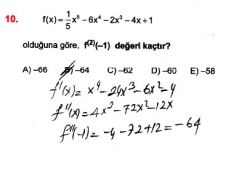 10. f(x) = 1/5 x⁵ – 6x⁴ – 2x³ – 4x + 1
olduğuna göre, f⁽²⁾(–1) değeri kaçtır?
A) –66 B) –64 C) –62 D) –60 E) –58
f'(x) = x⁴ – 24x³ – 6x² – 4
f''(x) = 4x³ – 72x² – 12x
f''(-1) = -4 - 72 + 12 = -64